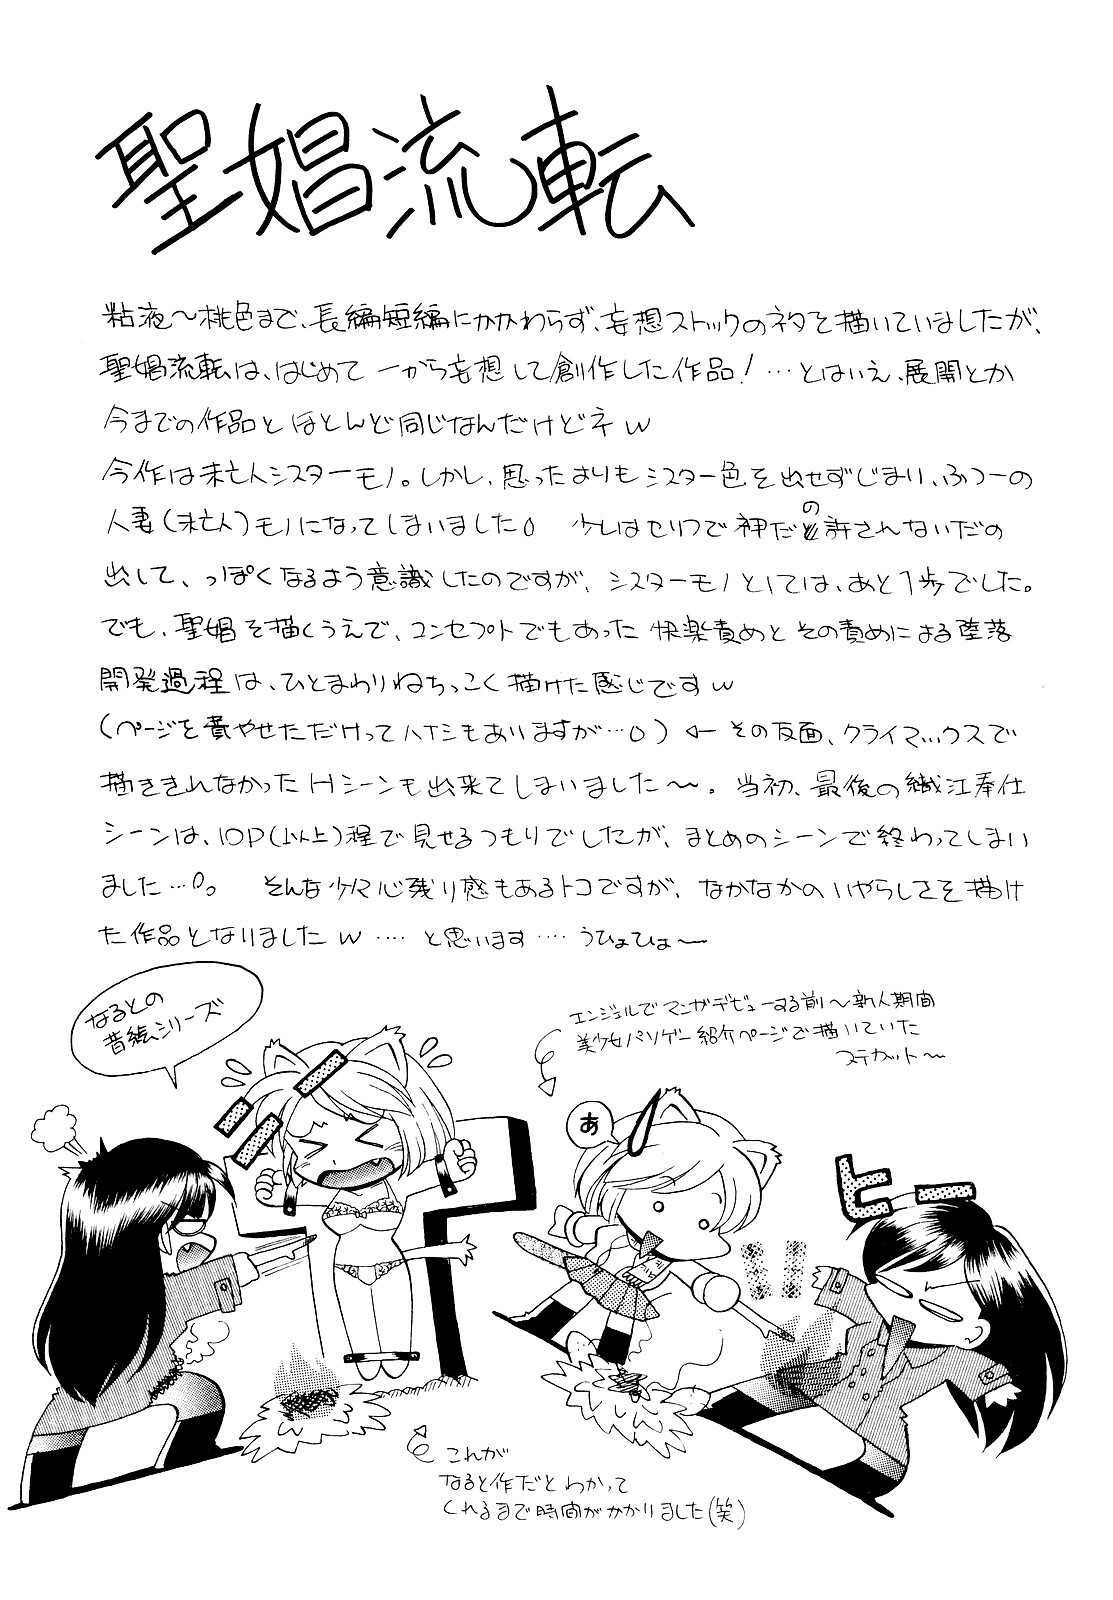 聖娼流転
粘液～桃色まで、長編短編にかかわらず、妄想ストックのネタを描いていましたが、
聖娼流転は、はじめて一から妄想して創作した作品！…とはいえ、展開とか
今までの作品とほとんど同じなんだけどネw
今作は未亡人シスターモノ。しかし、思ったよりもシスター色を出せずじまい、ふつーの
人妻(未亡人)モノになってしまいました 少しはセリフで神だの許されないだの
出して、っぽくなるよう意識したのですが、シスターモノとしては、あと1歩でした。
でも、聖娼を描くうえで、コンセプトでもあった快楽責めとその責めによる堕落
開発過程は、ひとまわりねちっこく描けた感じですw
(ページを費やせただけってハナシもありますが…) ← その反面、クライマックスで
描ききれなかったHシーンも出来てしまいました～。当初、最後の織江奉仕
シーンは、10P(以上)程で見せるつもりでしたが、まとめのシーンで終わってしまい
ました…。 そんな少々心残り感もあるトコですが、なかなかのいやらしさを描け
た作品となりましたw …. と思います…. うひょひょ～
なるとの
昔絵シリーズ
エンジェルでマンガデビューする前～新人期間
美少女パソゲー紹介ページで描いていた
ステカット～
あ
ヒー
これが
なると作だとわかって
くれるまで時間がかかりました(笑)